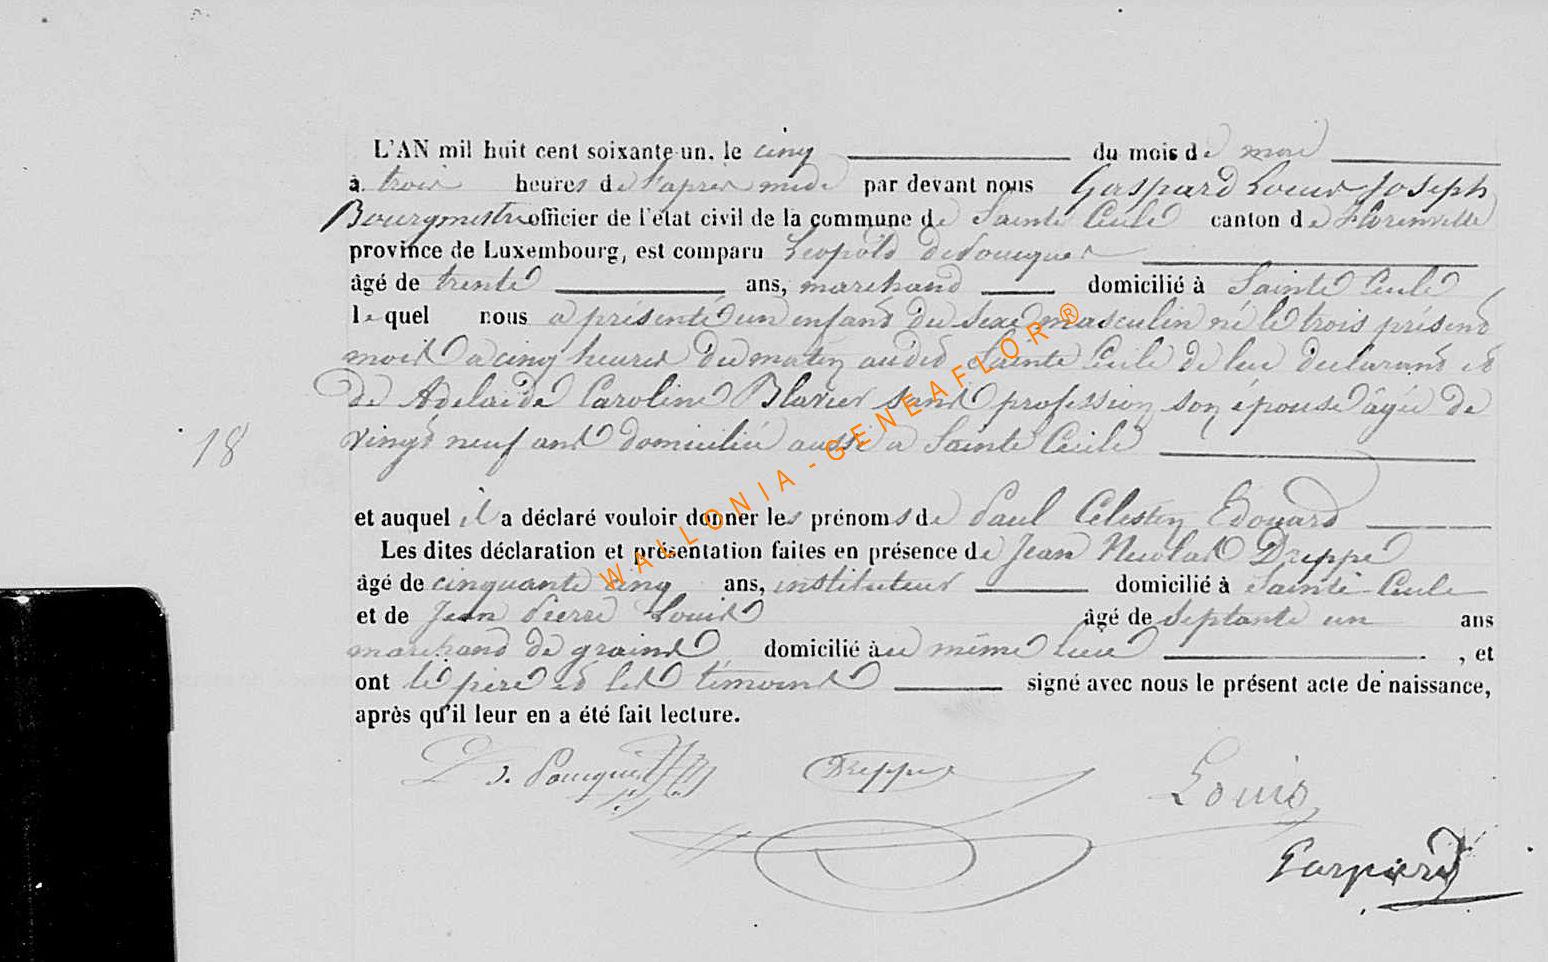 L'AN mil huit cent soixante-un, le cinq du mois de mai
à trois heures de l'après midi par devant nous Gaspard Louis Joseph
Bourgmestre officier de l'état civil de la commune de Sainte Cécile canton de Florenville
province de Luxembourg, est comparu Léopold
âgé de trente ans, marchand domicilié à Sainte Cécile
lequel nous a présenté un enfant du sexe masculin né le trois présent
mois a cinq heures du matin audit Sainte Cécile de lui déclarant et
de Adelaide Caroline Blavier sans profession son épouse âgée de
vingt neuf ans domiciliée aussi a Sainte Cécile
18
et auquel il a déclaré vouloir donner les prénoms de Paul Célestin Edouard
Les dites déclaration et présentation faites en présence de Jean Nicolas Dreppe
âgé de cinquante cinq ans, instituteur domicilié à Sainte-Cécile
et de Jean Pierre Louis âgé de septante un ans
marchand de grains domicilié à au même lieu , et
ont le père et les témoins signé avec nous le présent acte de naissance,
après qu'il leur en a été fait lecture.
Dreppe
Louis
Gaspard
WALLONIA - GENEAFLOR®